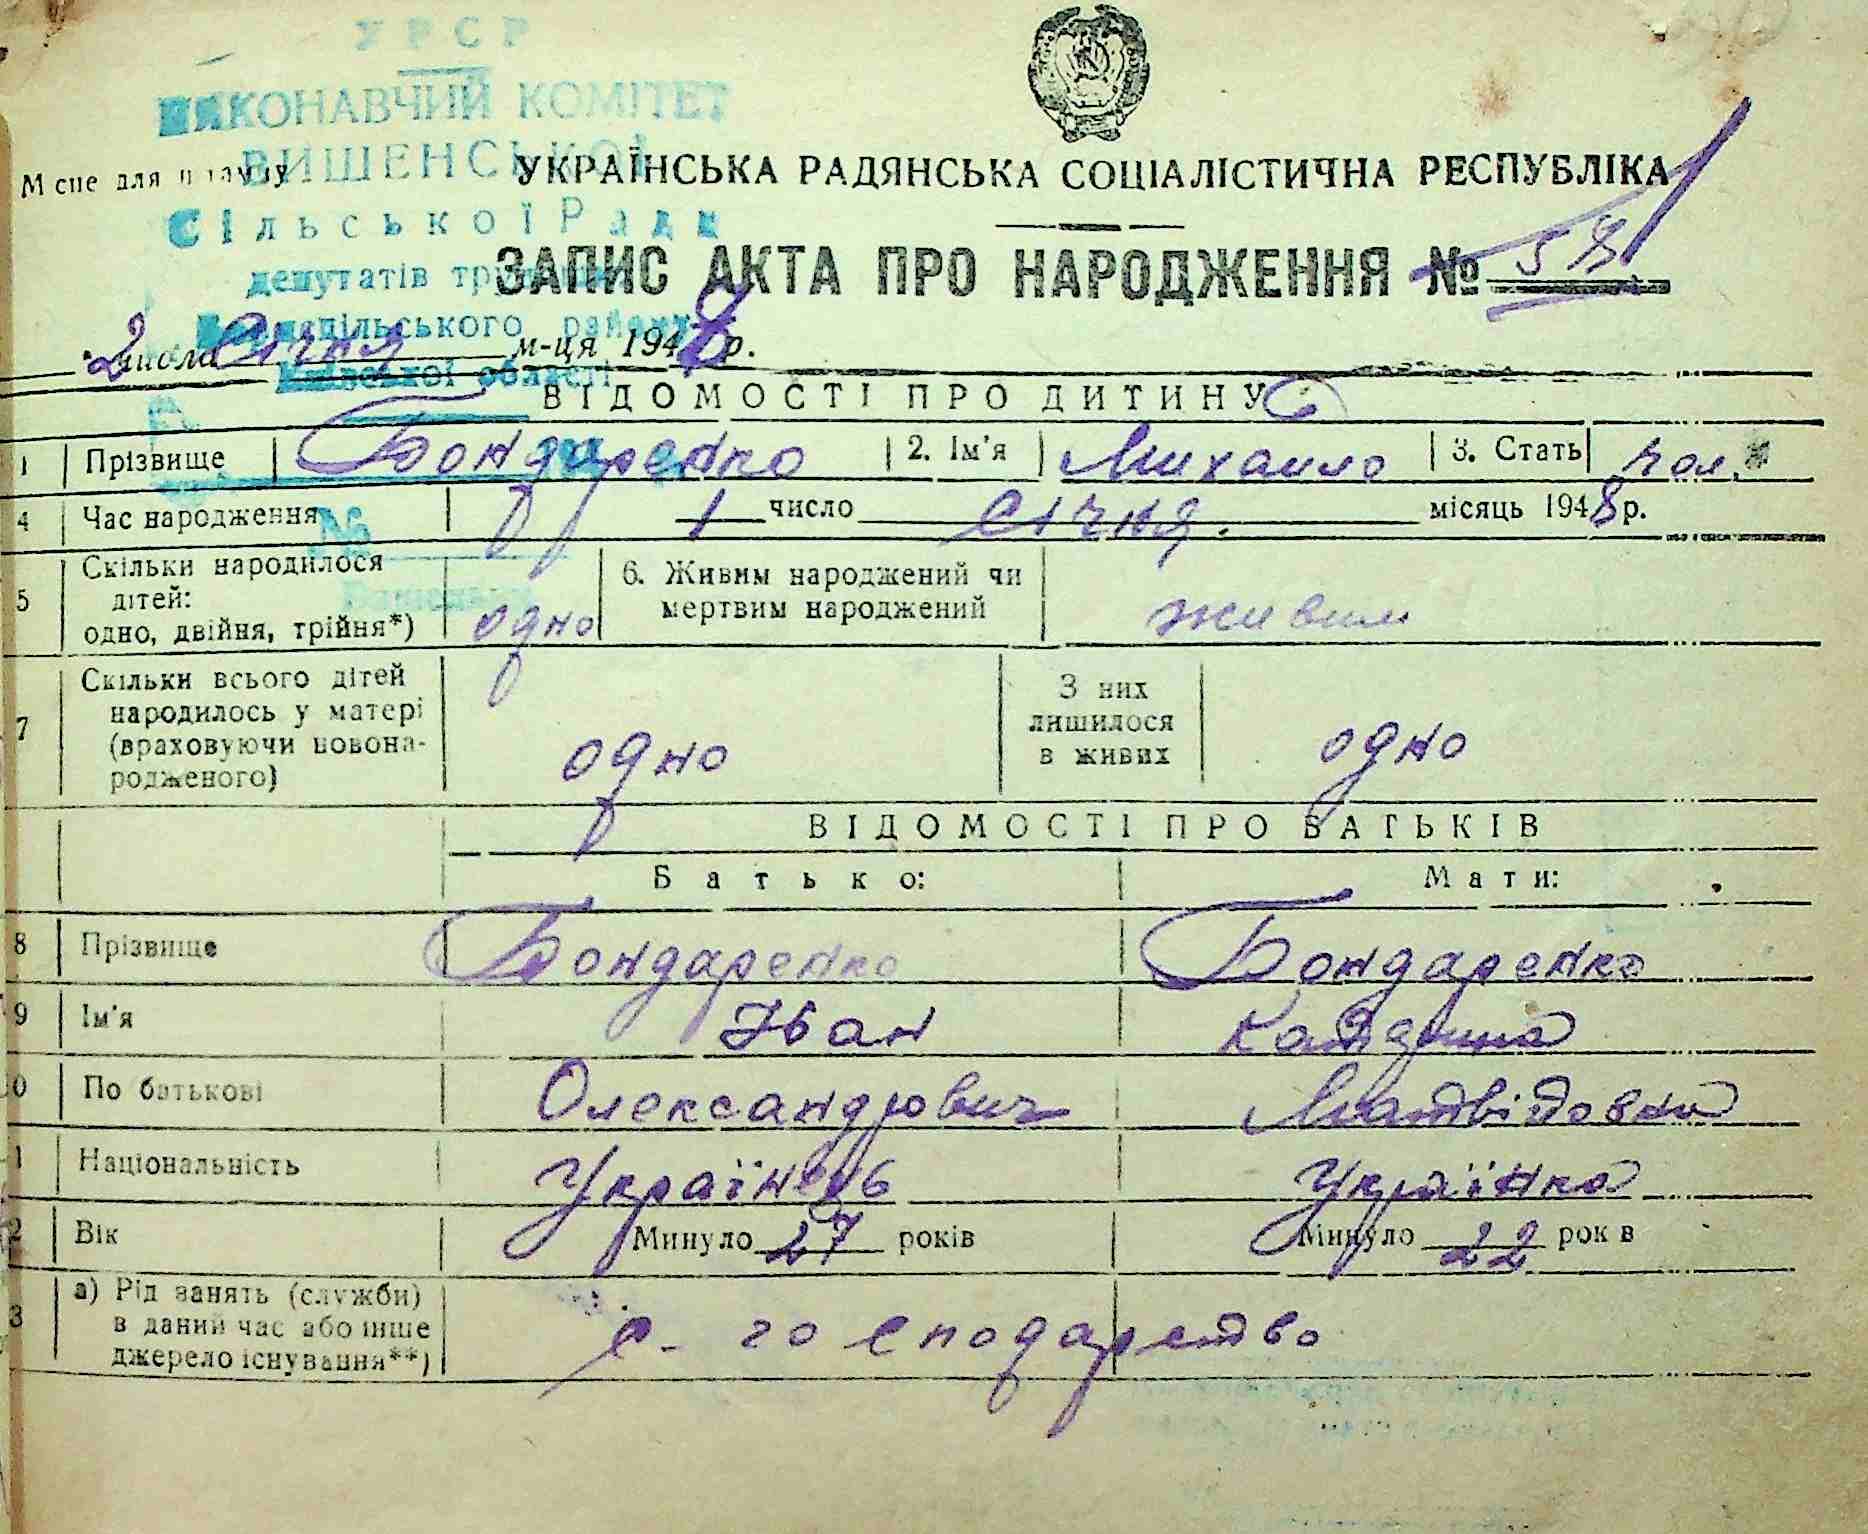 УРСР
ВИКОНАВЧИЙ КОМІТЕТ
ВИШЕНСЬКОЇ
Місце для штампу УКРАЇНСЬКА РАДЯНСЬКА СОЦІАЛІСТИЧНА РЕСПУБЛІКА
Сільської Ради
депутатів
ЗАПИС АКТА ПРО НАРОДЖЕННЯ №
району
2 числа Січня м-ця 1948 р.
Київської області
ВІДОМОСТІ ПРО ДИТИНУ
1 Прізвище Бондаренко 2. Ім'я Михаило 3. Стать чол.
4 Час народження 1 число Січня. місяць 1948 р.
№
5 Скільки народилося дітей: одно, двійня, трійня*) одно 6. Живим народжений чи мертвим народжений живим
7 Скільки всього дітей народилось у матері (враховуючи новонародженого) одно З них лишилося в живих одно
ВІДОМОСТІ ПРО БАТЬКІВ
Батько: Мати:
8 Прізвище Бондаренко Бондаренко
9 Ім'я Іван Катерина
0 По батькові Олександрович Матвіївна
1 Національність Українець Українка
2 Вік Минуло 27 років Минуло 22 років
3 а) Рід занять (служби) в даний час або інше джерело існування**) с. господарство